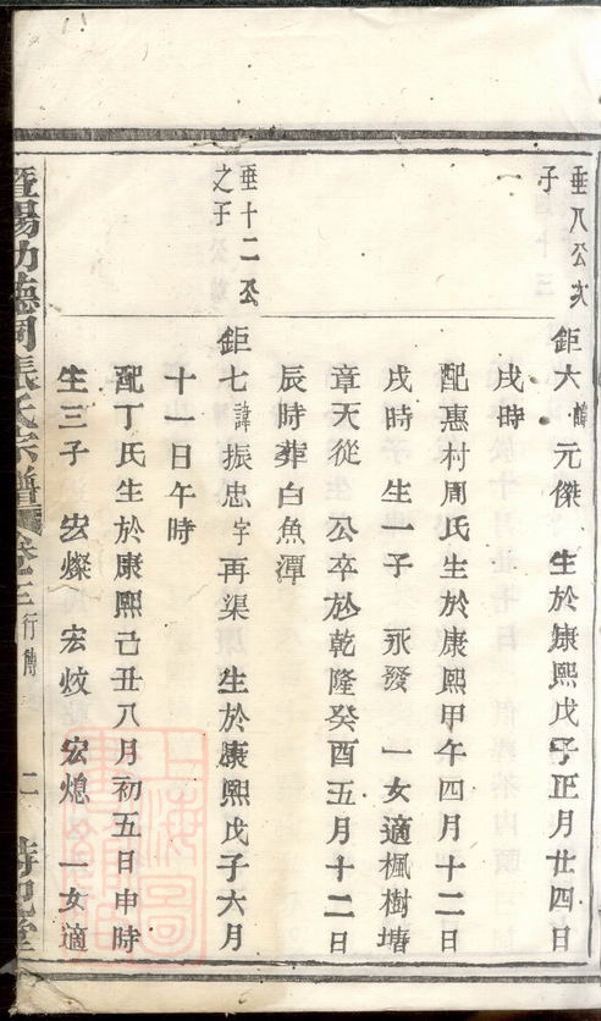 垂八公次
子
一
鉅六諱元傑　生於康熙戊子正月廿四日
戌時
配惠村周氏生於康熙甲午四月十二日
戌時　生一子　永發　一女適楓樹塘
章天從　公卒於乾隆癸酉五月十二日
辰時葬白魚潭
垂十二公
之子
鉅七諱振忠字再渠　生於康熙戊子六月
十一日午時
配丁氏生於康熙己丑八月初五日申時
生三子　宏燦　宏炆　宏熄　一女適
暨陽功德祠張氏宗譜　卷三　行傳　二
上海圖書館藏